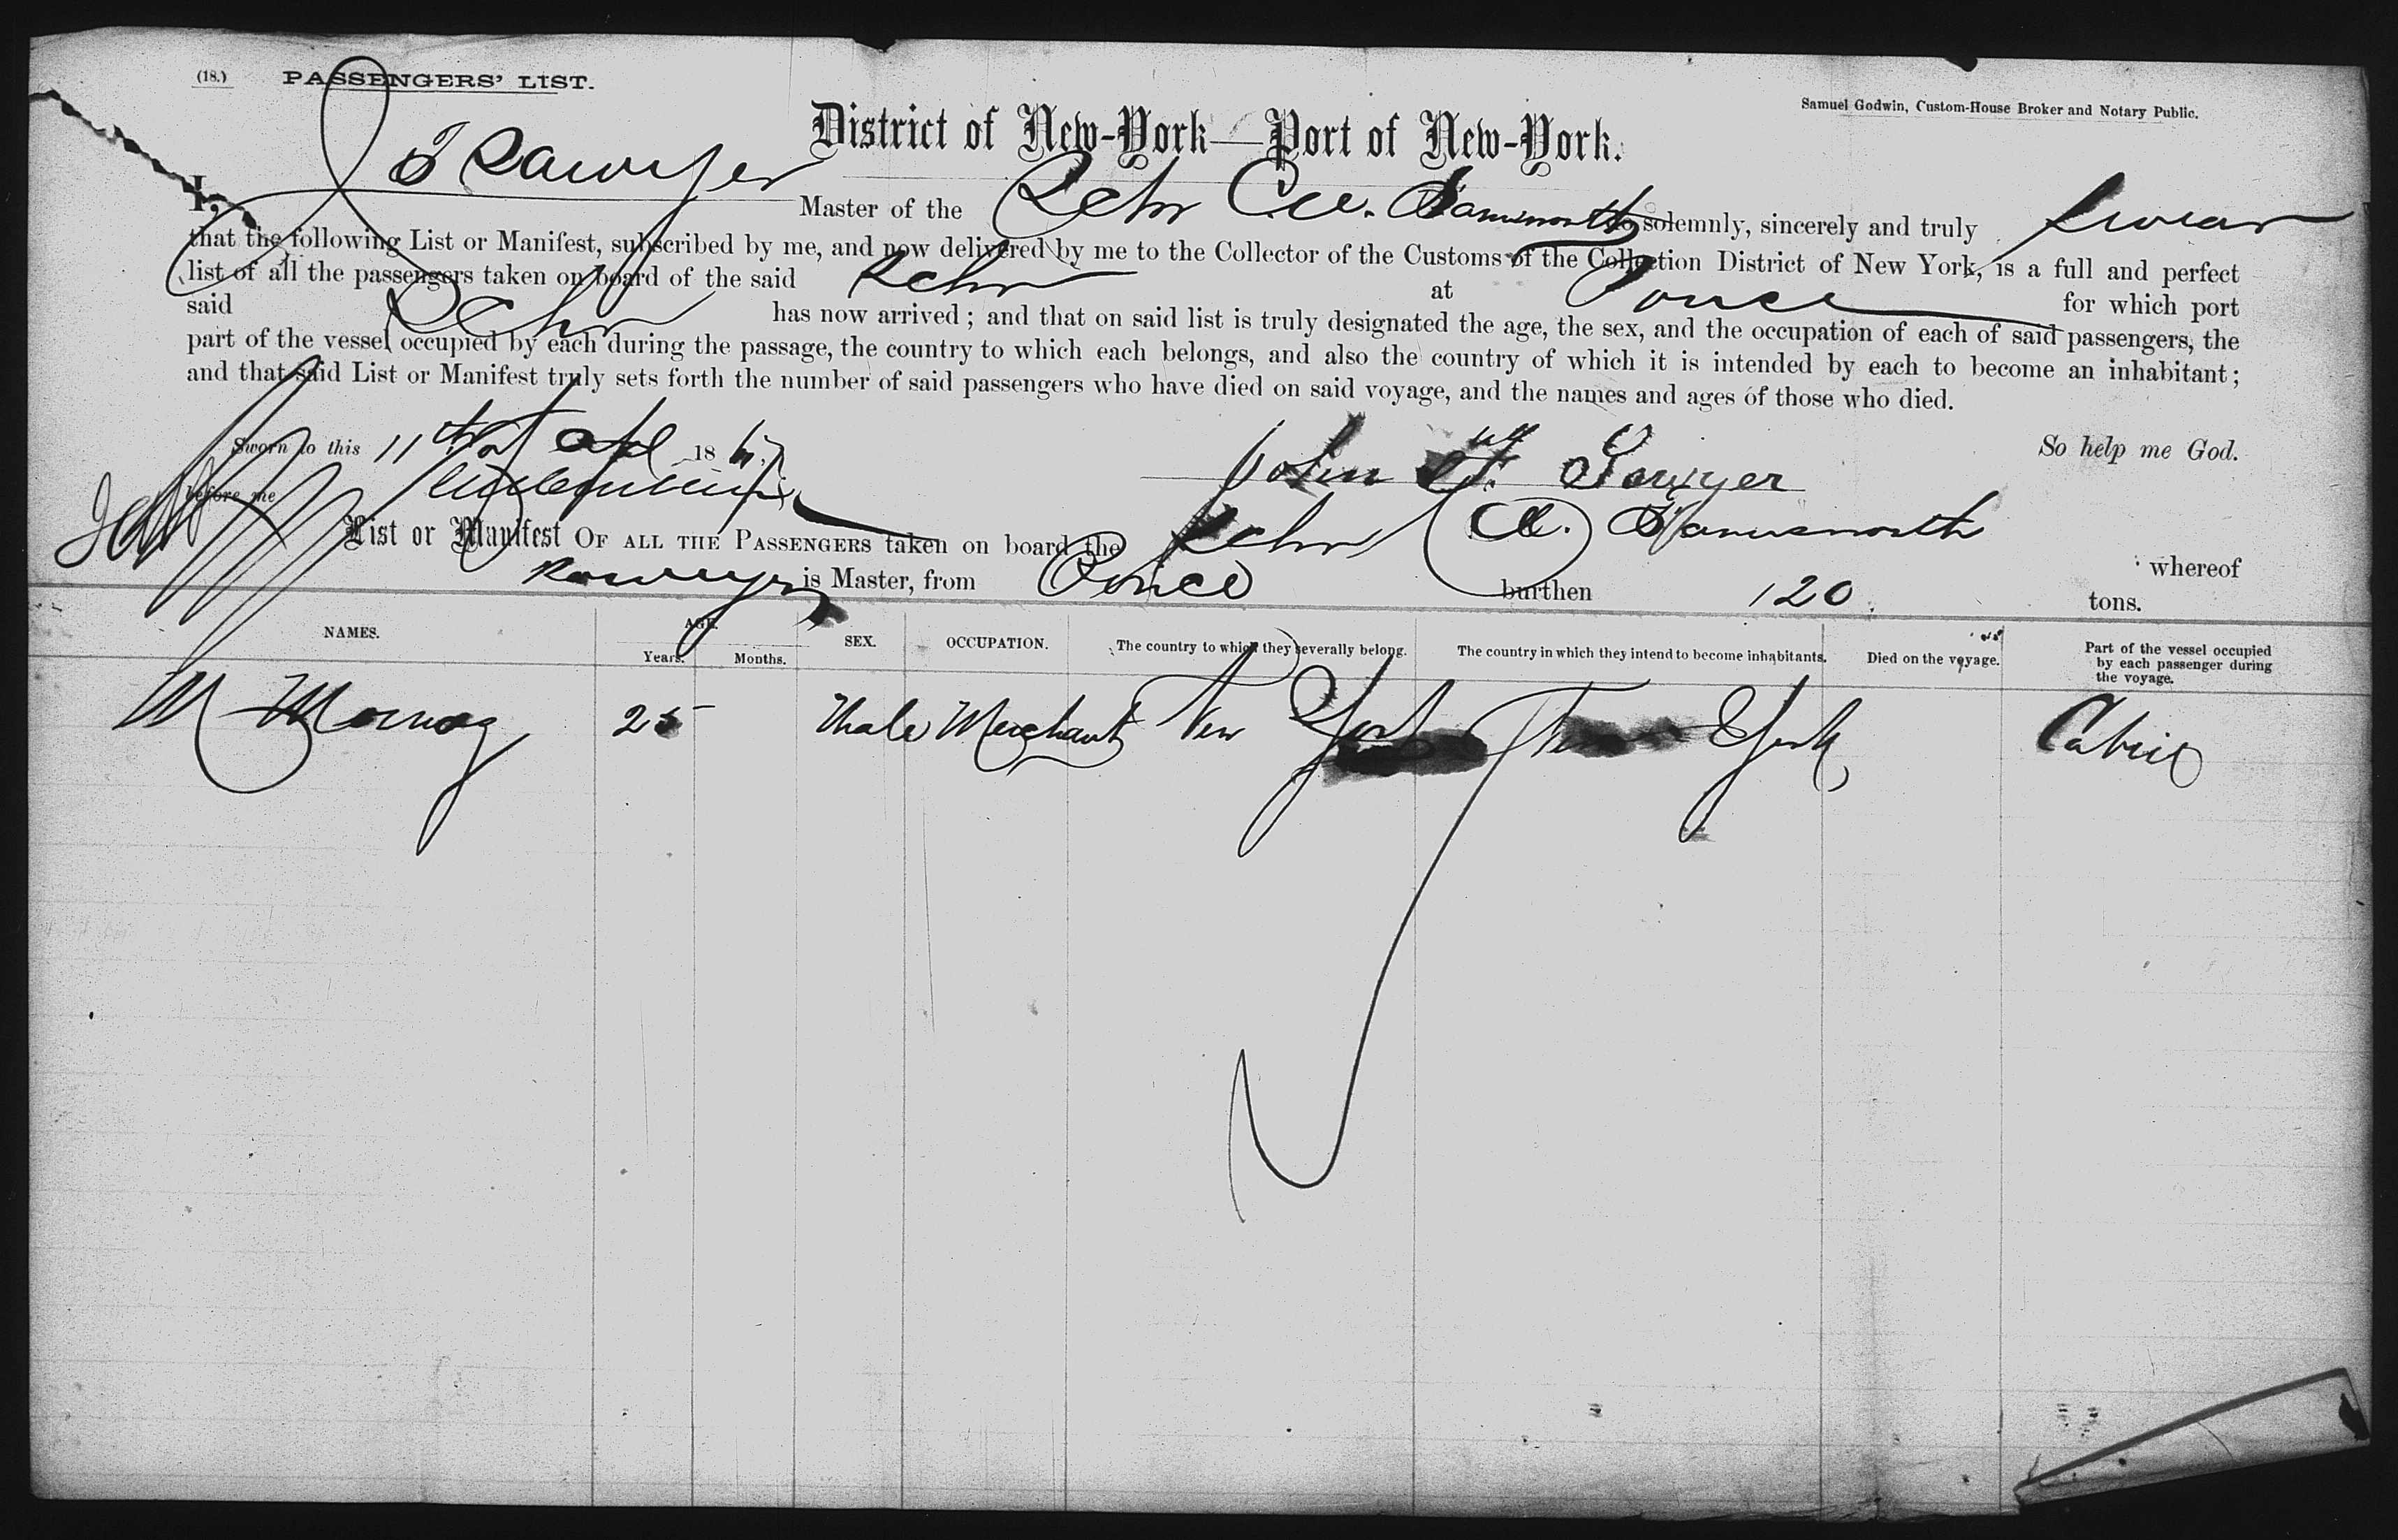 (18.) PASSENGERS' LIST.
Samuel Godwin, Custom-House Broker and Notary Public.
District of New-York—Port of New-York.
I, J Sawyer Master of the Schr do solemnly, sincerely and truly swear
that the following List or Manifest, subscribed by me, and now delivered by me to the Collector of the Customs of the Collection District of New York, is a full and perfect
list of all the passengers taken on board of the said Schr at Ponce for which port
said Schr has now arrived; and that on said list is truly designated the age, the sex, and the occupation of each of said passengers, the
part of the vessel occupied by each during the passage, the country to which each belongs, and also the country of which it is intended by each to become an inhabitant;
and that said List or Manifest truly sets forth the number of said passengers who have died on said voyage, and the names and ages of those who died.
Sworn to this 11th Apl 186
So help me God.
before me
John Sawyer
List or Manifest OF ALL THE PASSENGERS taken on board the Schr whereof
Sawyer is Master, from Ponce burthen 120 tons.
NAMES. AGE. Years. Months. SEX. OCCUPATION. The country to which they severally belong. The country in which they intend to become inhabitants. Died on the voyage. Part of the vessel occupied by each passenger during the voyage.
M 25 Male Merchant New York New York Cabin